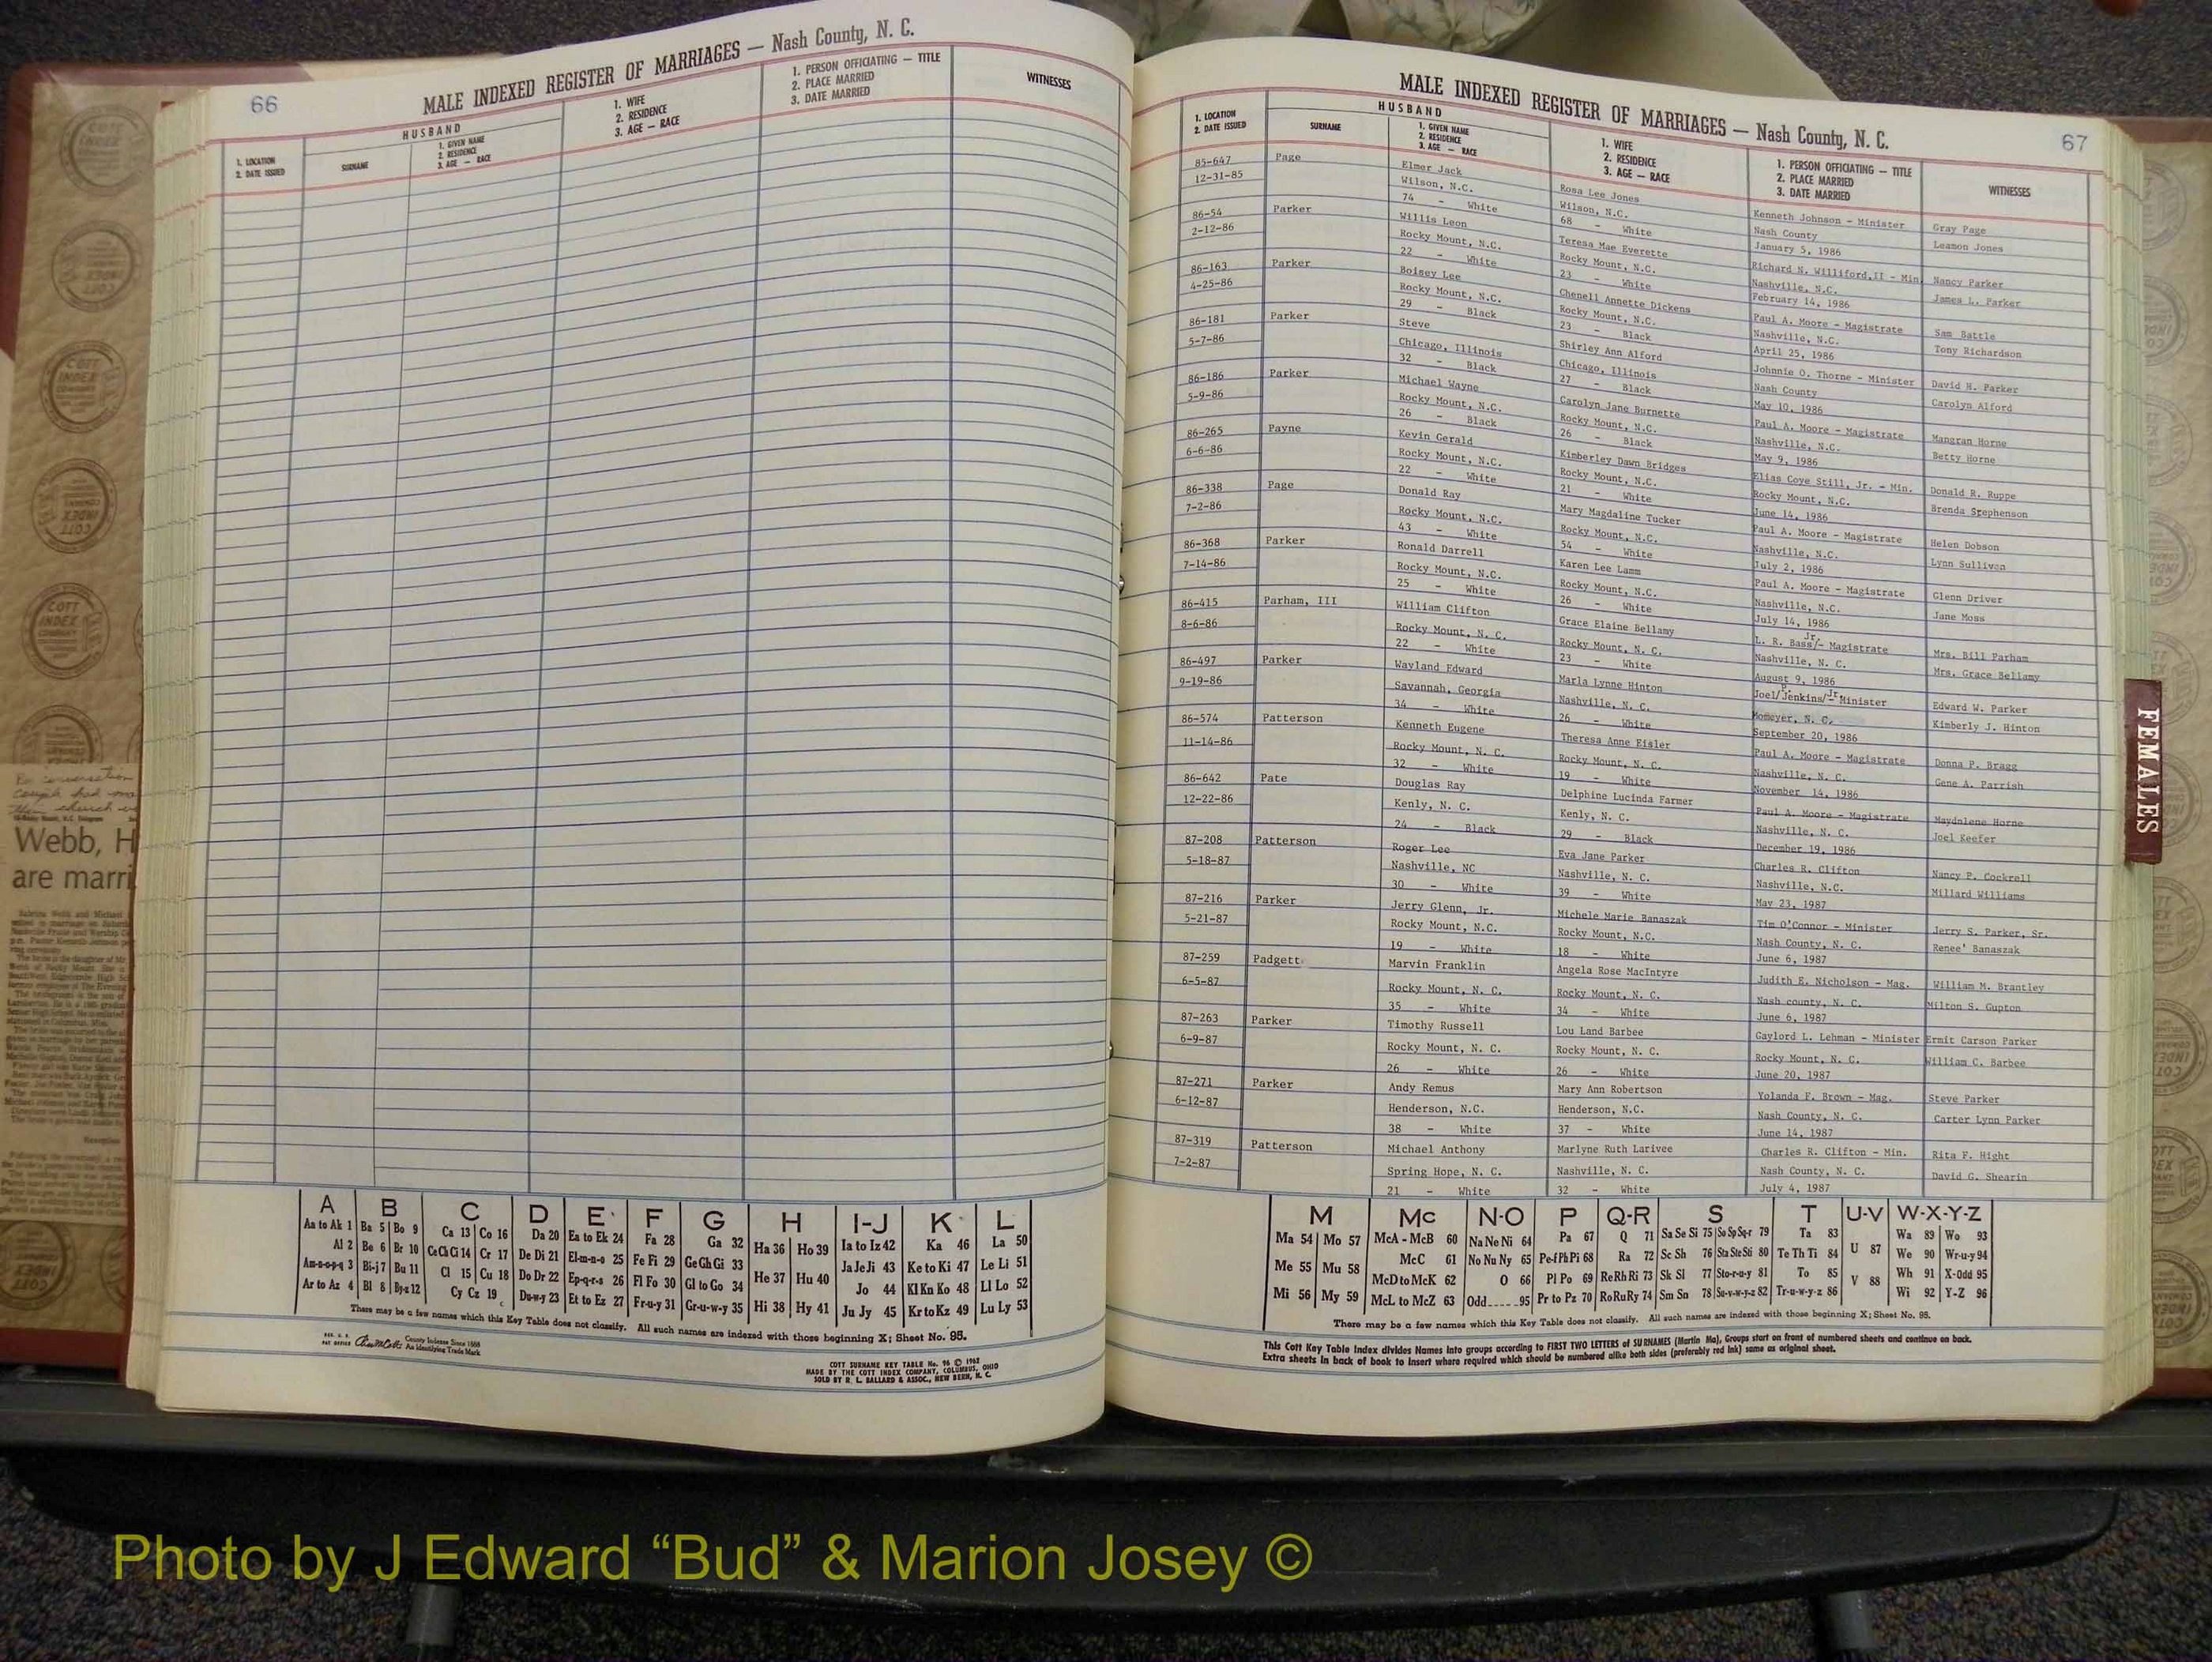 66
MALE INDEXED REGISTER OF MARRIAGES — Nash County, N. C.
1. LOCATION
2. DATE ISSUED
HUSBAND
SURNAME
1. GIVEN NAME
2. RESIDENCE
3. AGE — RACE
1. WIFE
2. RESIDENCE
3. AGE — RACE
1. PERSON OFFICIATING — TITLE
2. PLACE MARRIED
3. DATE MARRIED
WITNESSES
A B C D E F G H I-J K L
Aa to Ak 1 Ba 5 Bo 9 Ca 13 Co 16 Da 20 Ea to Ek 24 Fa 28 Ga 32 Ha 36 Ho 39 Ia to Iz 42 Ka 46 La 50
Al 2 Be 6 Br 10 Ce Ch Ci 14 Cr 17 De Di 21 El-m-n-o 25 Fe Fi 29 Ge Gh Gi 33 He 37 Hu 40 Ja Je Ji 43 Ke to Ki 47 Le Li 51
Am-n-o-p-q 3 Bi-j 7 Bu 11 Cl 15 Cu 18 Do Dr 22 Ep-q-r-s 26 Fl Fo 30 Gl to Go 34 Hi 38 Hy 41 Jo 44 Kl Kn Ko 48 Ll Lo 52
Ar to Az 4 Bl 8 By-z 12 Cy Cz 19 Du-w-y 23 Et to Ez 27 Fr-u-y 31 Gr-u-w-y 35 Ju Jy 45 Kr to Kz 49 Lu Ly 53
There may be a few names which this Key Table does not classify. All such names are indexed with those beginning X; Sheet No. 95.
County Indexes Since 1888
An Identifying Trade Mark
COTT SURNAME KEY TABLE No. 96 © 1962
MADE BY THE COTT INDEX COMPANY, COLUMBUS, OHIO
SOLD BY R. L. BALLARD & ASSOC., NEW BERN, N. C.
Webb, H
are marri
MALE INDEXED REGISTER OF MARRIAGES — Nash County, N. C.
67
1. LOCATION
2. DATE ISSUED
HUSBAND
SURNAME
1. GIVEN NAME
2. RESIDENCE
3. AGE — RACE
1. WIFE
2. RESIDENCE
3. AGE — RACE
1. PERSON OFFICIATING — TITLE
2. PLACE MARRIED
3. DATE MARRIED
WITNESSES
85-647 Page Elmer Jack Rosa Lee Jones Kenneth Johnson - Minister Gray Page
12-31-85 Wilson, N.C. Wilson, N.C. Nash County Leamon Jones
74 - White 68 - White January 5, 1986
86-54 Parker Willis Leon Teresa Mae Everette Richard N. Williford,II - Min. Nancy Parker
2-12-86 Rocky Mount, N.C. Rocky Mount, N.C. Nashville, N.C. James L. Parker
22 - White 23 - White February 14, 1986
86-163 Parker Boisey Lee Chenell Annette Dickens Paul A. Moore - Magistrate Sam Battle
4-25-86 Rocky Mount, N.C. Rocky Mount, N.C. Nashville, N.C. Tony Richardson
29 - Black 23 - Black April 25, 1986
86-181 Parker Steve Shirley Ann Alford Johnnie O. Thorne - Minister David H. Parker
5-7-86 Chicago, Illinois Chicago, Illinois Nash County Carolyn Alford
32 - Black 27 - Black May 10, 1986
86-186 Parker Michael Wayne Carolyn Jane Burnette Paul A. Moore - Magistrate Mangran Horne
5-9-86 Rocky Mount, N.C. Rocky Mount, N.C. Nashville, N.C. Betty Horne
26 - Black 26 - Black May 9, 1986
86-265 Payne Kevin Gerald Kimberley Dawn Bridges Elias Coye Still, Jr. - Min. Donald R. Ruppe
6-6-86 Rocky Mount, N.C. Rocky Mount, N.C. Rocky Mount, N.C. Brenda Stephenson
22 - White 21 - White June 14, 1986
86-338 Page Donald Ray Mary Magdaline Tucker Paul A. Moore - Magistrate Helen Dobson
7-2-86 Rocky Mount, N.C. Rocky Mount, N.C. Nashville, N.C. Lynn Sullivan
43 - White 54 - White July 2, 1986
86-368 Parker Ronald Darrell Karen Lee Lamm Paul A. Moore - Magistrate Glenn Driver
7-14-86 Rocky Mount, N.C. Rocky Mount, N.C. Nashville, N.C. Jane Moss
25 - White 26 - White July 14, 1986
86-415 Parham, III William Clifton Grace Elaine Bellamy L. R. Bass/Jr. - Magistrate Mrs. Bill Parham
8-6-86 Rocky Mount, N. C. Rocky Mount, N. C. Nashville, N. C. Mrs. Grace Bellamy
22 - White 23 - White August 9, 1986
86-497 Parker Wayland Edward Marla Lynne Hinton Joel/P. Jenkins/Jr. - Minister Edward W. Parker
9-19-86 Savannah, Georgia Nashville, N. C. Momeyer, N. C. Kimberly J. Hinton
34 - White 26 - White September 20, 1986
86-574 Patterson Kenneth Eugene Theresa Anne Eisler Paul A. Moore - Magistrate Donna P. Bragg
11-14-86 Rocky Mount, N. C. Rocky Mount, N. C. Nashville, N. C. Gene A. Parrish
32 - White 19 - White November 14, 1986
86-642 Pate Douglas Ray Delphine Lucinda Farmer Paul A. Moore - Magistrate Maydnlene Horne
12-22-86 Kenly, N. C. Kenly, N. C. Nashville, N. C. Joel Keefer
24 - Black 29 - Black December 19, 1986
87-208 Patterson Roger Lee Eva Jane Parker Charles R. Clifton Nancy P. Cockrell
5-18-87 Nashville, NC Nashville, N. C. Nashville, N.C. Millard Williams
30 - White 39 - White May 23, 1987
87-216 Parker Jerry Glenn, Jr. Michele Marie Banaszak Tim O'Connor - Minister Jerry S. Parker, Sr.
5-21-87 Rocky Mount, N.C. Rocky Mount, N.C. Nash County, N. C. Renee' Banaszak
19 - White 18 - White June 6, 1987
87-259 Padgett Marvin Franklin Angela Rose MacIntyre Judith E. Nicholson - Mag. William M. Brantley
6-5-87 Rocky Mount, N. C. Rocky Mount, N. C. Nash county, N. C. Milton S. Gupton
35 - White 34 - White June 6, 1987
87-263 Parker Timothy Russell Lou Land Barbee Gaylord L. Lehman - Minister Ermit Carson Parker
6-9-87 Rocky Mount, N. C. Rocky Mount, N. C. Rocky Mount, N. C. William C. Barbee
26 - White 26 - White June 20, 1987
87-271 Parker Andy Remus Mary Ann Robertson Yolanda F. Brown - Mag. Steve Parker
6-12-87 Henderson, N.C. Henderson, N.C. Nash County, N. C. Carter Lynn Parker
38 - White 37 - White June 14, 1987
87-319 Patterson Michael Anthony Marlyne Ruth Larivee Charles R. Clifton - Min. Rita F. Hight
7-2-87 Spring Hope, N. C. Nashville, N. C. Nash County, N. C. David G. Shearin
21 - White 32 - White July 4, 1987
M Mc N-O P Q-R S T U-V W-X-Y-Z
Ma 54 Mo 57 McA - McB 60 Na Ne Ni 64 Pa 67 Q 71 Sa Se Si 75 So Sp Sq-r 79 Ta 83 U 87 Wa 89 Wo 93
Me 55 Mu 58 McC 61 No Nu Ny 65 Pe-f Ph Pi 68 Ra 72 Sc Sh 76 Sta Ste Sti 80 Te Th Ti 84 V 88 We 90 Wr-u-y 94
Mi 56 My 59 McD to McK 62 O 66 Pl Po 69 Re Rh Ri 73 Sk Sl 77 Sto-r-u-y 81 To 85 Wh 91 X-Odd 95
McL to McZ 63 Odd 95 Pr to Pz 70 Ro Ru Ry 74 Sm Sn 78 Su-v-w-y-z 82 Tr-u-w-y-z 86 Wi 92 Y-Z 96
There may be a few names which this Key Table does not classify. All such names are indexed with those beginning X; Sheet No. 95.
This Cott Key Table Index divides Names into groups according to FIRST TWO LETTERS of SURNAMES (Martin Ma). Groups start on front of numbered sheets and continue on back.
Extra sheets in back of book to insert where required which should be numbered alike both sides (preferably red ink) same as original sheet.
FEMALES
COTT
INDEX
COMPANY
Photo by J Edward “Bud” & Marion Josey ©